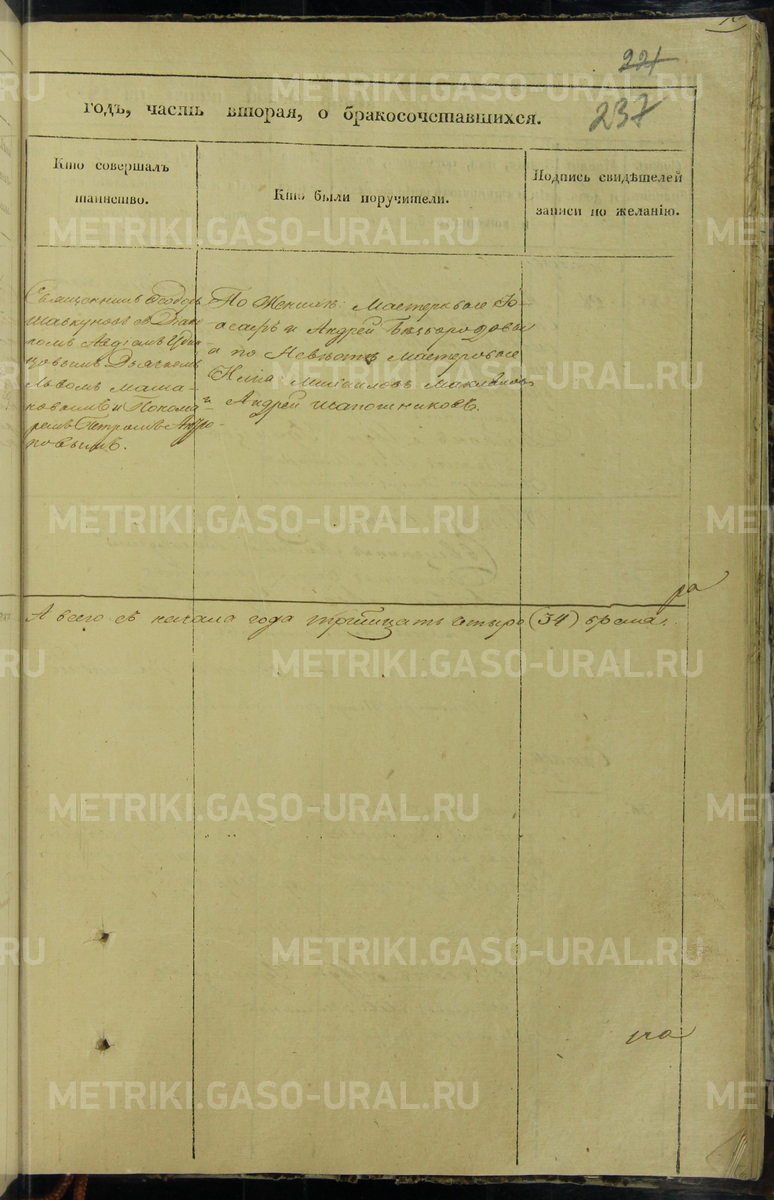 221
237
годъ, часть вторая, о бракосочетавшихся.
Кто совершалъ
таинство.
Кто были поручители.
Подпись свидѣтелей
записи по желанію.
Священникъ Ѳеодоръ
Шавкуновъ съ Діако-
номъ
Дьячкомъ
Львомъ Мама-
ковымъ и Понома-
ремъ Петромъ Андро-
новымъ.
По Женихѣ: Мастеровые
и Андрей Безбородовы
и по Невѣстѣ Мастеровые
Михайловъ
и Андрей Шапошниковъ.
А всего съ начала года тритцать четыре (34) брака.
ра
METRIKI.GASO-URAL.RU